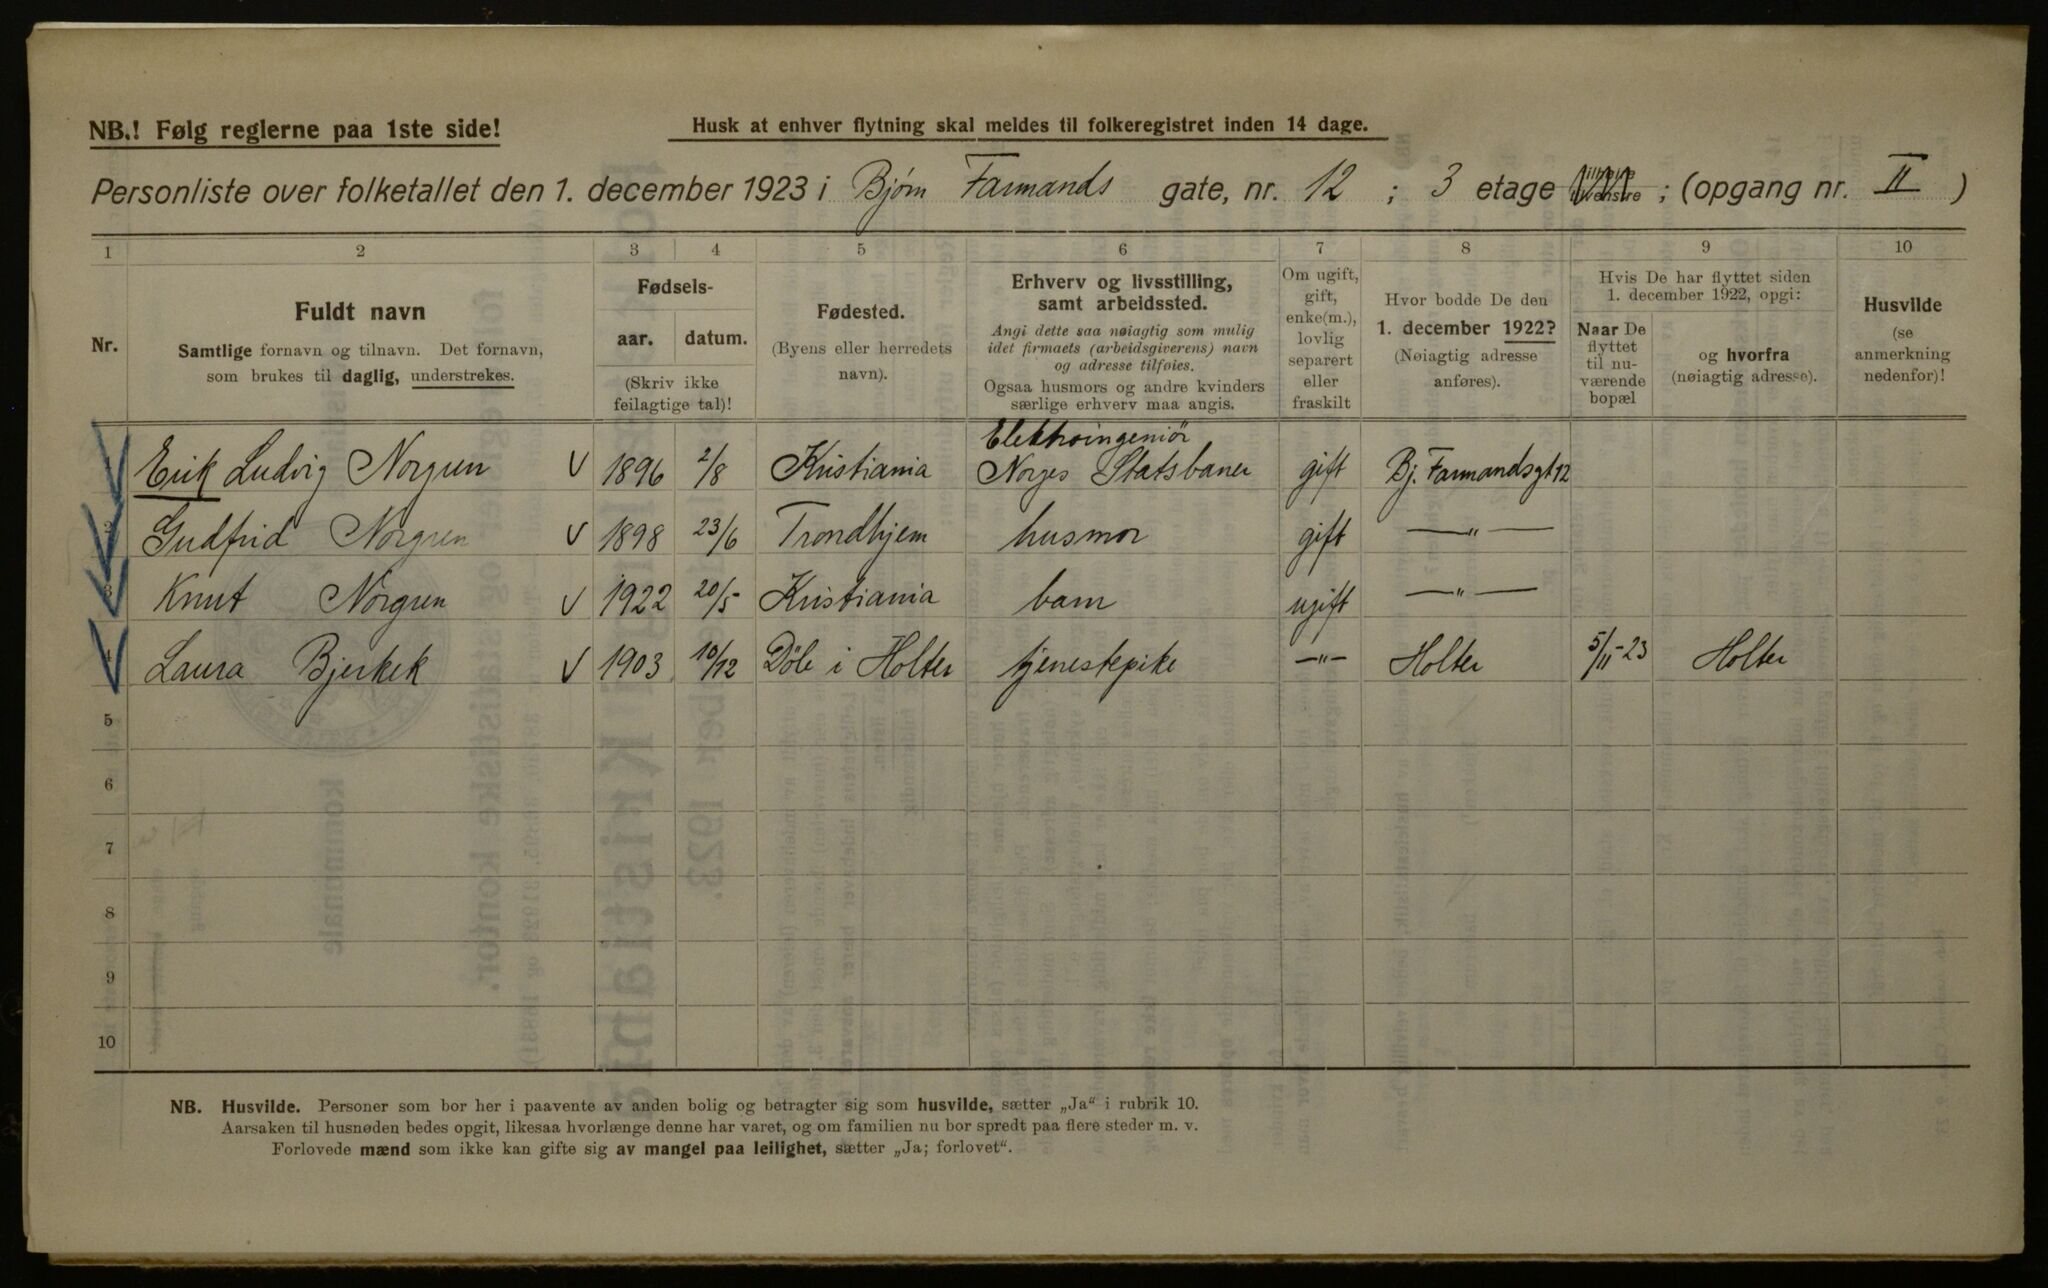 NB.! Følg reglerne paa 1ste side!
Husk at enhver flytning skal meldes til folkeregistret inden 14 dage.
Personliste over folketallet den 1. december 1923 i Bjørn Farmands gate, nr. 12 ; 3 etage ; (opgang nr. II )
1 2 3 4 5 6 7 8 9 10
Nr.
Fuldt navn
Samtlige fornavn og tilnavn. Det fornavn,
som brukes til daglig, understrekes.
Fødsels-
aar. datum.
(Skriv ikke
feilagtige tal)!
Fødested.
(Byens eller herredets
navn).
Erhverv og livsstilling,
samt arbeidssted.
Angi dette saa nøiagtig som mulig
idet firmaets (arbeidsgiverens) navn
og adresse tilføies.
Ogsaa husmors og andre kvinders
særlige erhverv maa angis.
Om ugift,
gift,
enke(m.),
lovlig
separert
eller
fraskilt
Hvor bodde De den
1. december 1922?
(Nøiagtig adresse
anføres).
Hvis De har flyttet siden
1. december 1922, opgi:
Naar De
flyttet
til nu-
værende
bopæl
og hvorfra
(nøiagtig adresse).
Husvilde
(se
anmerkning
nedenfor)!
Elektroingeniör
1 Erik Ludvig Norgren V 1896 2/8 Kristiania Norges Statsbaner gift Bj. Farmandsgt 12
2 Gudfrid Norgren V 1898 23/6 Trondhjem husmor gift —"—
3 Knut Norgren V 1922 20/5 Kristiania barn ugift —"—
4 Laura Bjerkek V 1903 10/12 Döle i Holter tjenestepike —"— Holter 5/11-23 Holter
5
6
7
8
9
10
NB. Husvilde. Personer som bor her i paavente av anden bolig og betragter sig som husvilde, sætter „Ja“ i rubrik 10.
Aarsaken til husnøden bedes opgit, likesaa hvorlænge denne har varet, og om familien nu bor spredt paa flere steder m. v.
Forlovede mænd som ikke kan gifte sig av mangel paa leilighet, sætter „Ja; forlovet“.